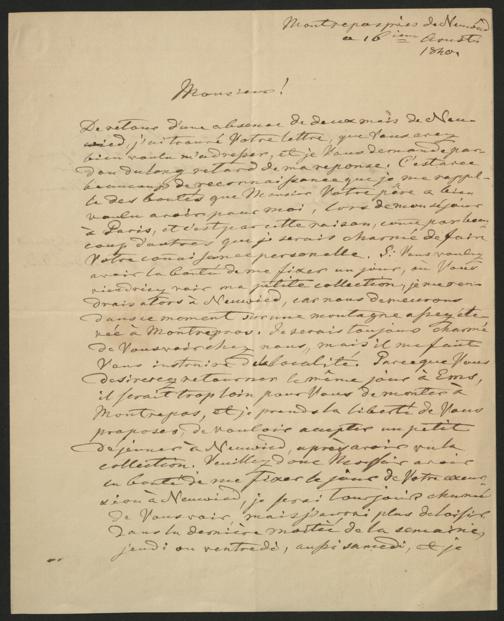 Montrepos près de Neuwied
ce 16ième Aoust
1840.
Monsieur!
De retour d'une absence de deux mois de Neu-
wied, j'ai trouvé Votre lettre, que Vous avez
bien voulu m'adresser, et je Vous demande par-
don du long retard de ma réponse. C'est avec
beaucoup de reconnaissance que je me rappel-
le des boutés que Monsieur Votre père a bien
voulu avoir pour moi, lors de mon séjour
à Paris, et c'est par cette raison, comme par beau
coup d'autres que je serais charmé de faire
Votre connaissance personelle. Si Vous vouliez
avoir la bonté de me fixer un jour, où Vous
viendriez voir ma petite collection, je me ren-
drais alors à Neuwied, car nous demeurons
dans ce moment sur une montagne assez éle-
vée à Montrepos. Je serais toujours charmé
de Vous voir chez nous, mais il me faut
Vous instruire de la localité. Parceque Vous
desirerez retourner le même jour à Ems,
il serait trop loin pour Vous de monter à
Montrepos, et je prends la liberté de Vous
proposer, de vouloir accepter un petit
déjeuner à Neuwied, après avoir vu la
collection. Veuillez donc Monsieur avoir
la bonté de me fixer le jour de Votre excur-
sion à Neuwied, je serai toujours charmé
de Vous voir, mais j'aurai plus de loisir
dans la dernière moitié de la semaine,
jeudi ou vendredi, aussi samedi, et je